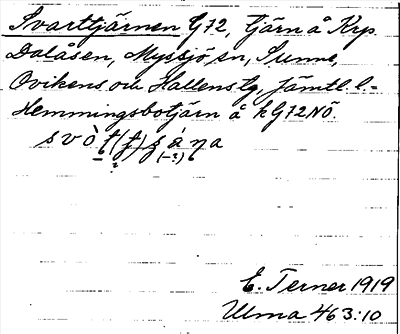 Svarttjärnen G72, tjärn å Krp.
Dalåsen, Myssjö sn, Sunne,
Ovikens och Hallens tg, Jämtl. l. =
Hemmingsbotjärn å kG72NÖ.
E. Terner 1919
Ulma 463:10